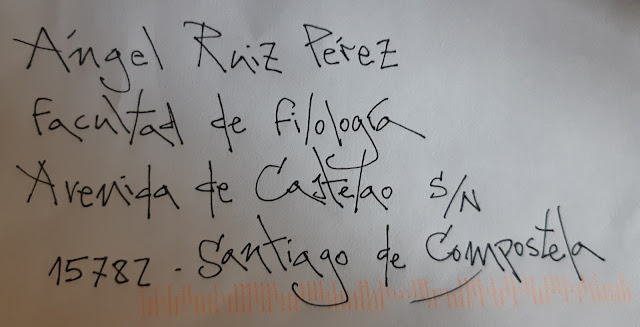 Ángel Ruiz Pérez
Facultad de Filología
Avenida de Castelao S/N
15782 - Santiago de Compostela